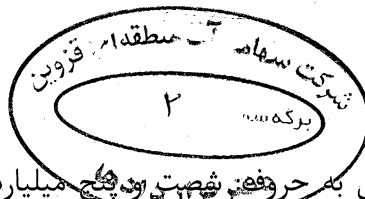 شرکت سهامی آب منطقه‌ای قزوین
برگه
۲
به حروف شصت و پنج میلیارد